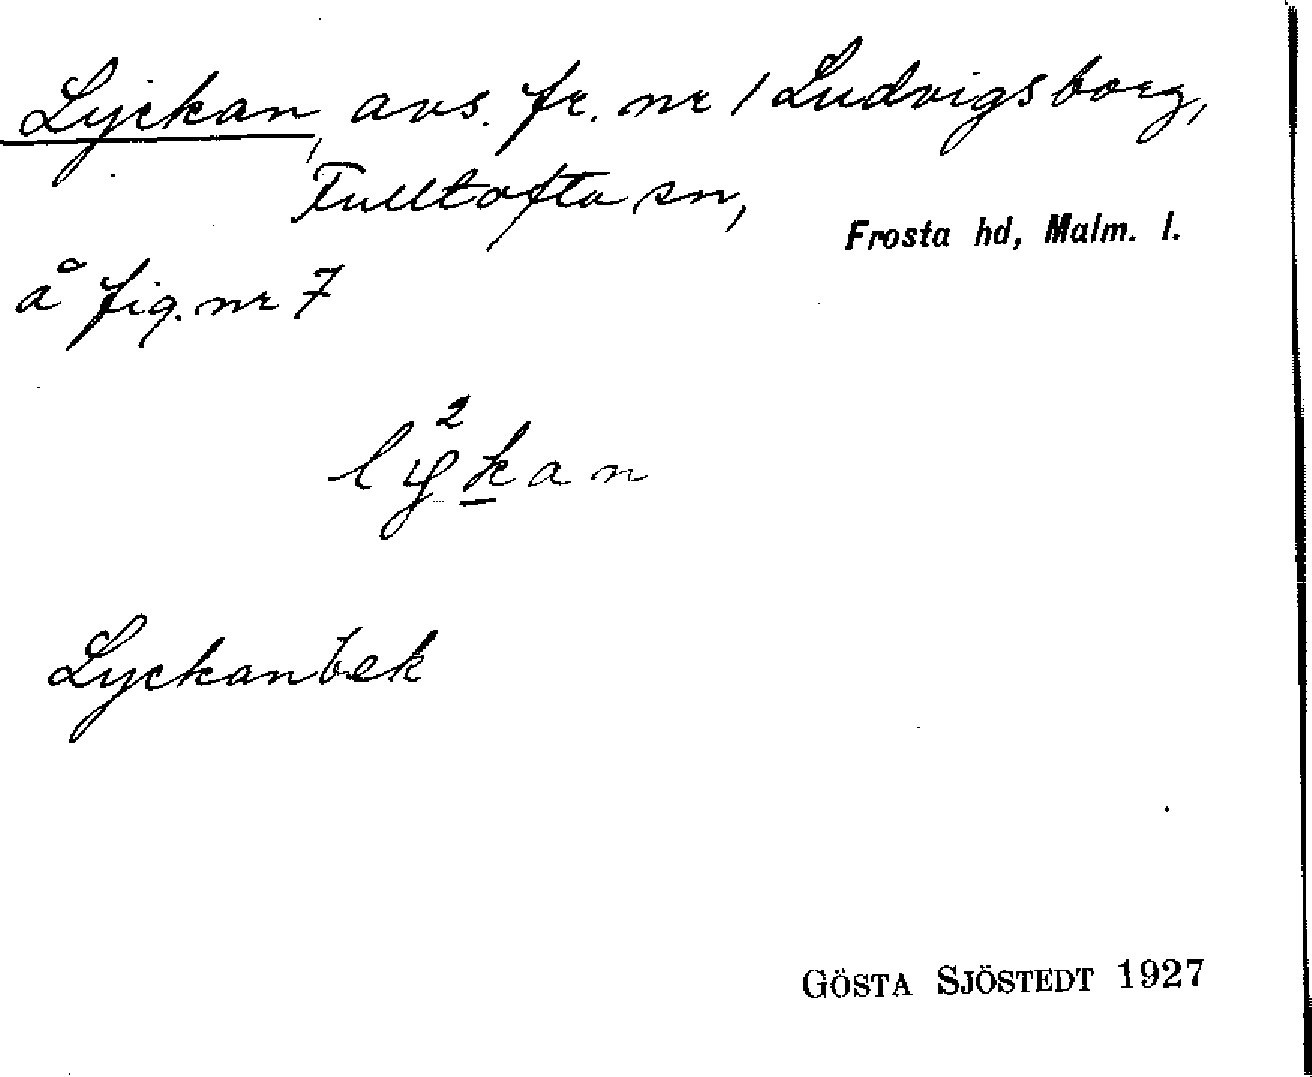 Lyckan, avs. fr. nr 1 Ludvigsborg,
Fulltofta sn,
Frosta hd, Malm. l.
å fig. nr 7
2
lykan
Lyckanbek
GÖSTA SJÖSTEDT 1927